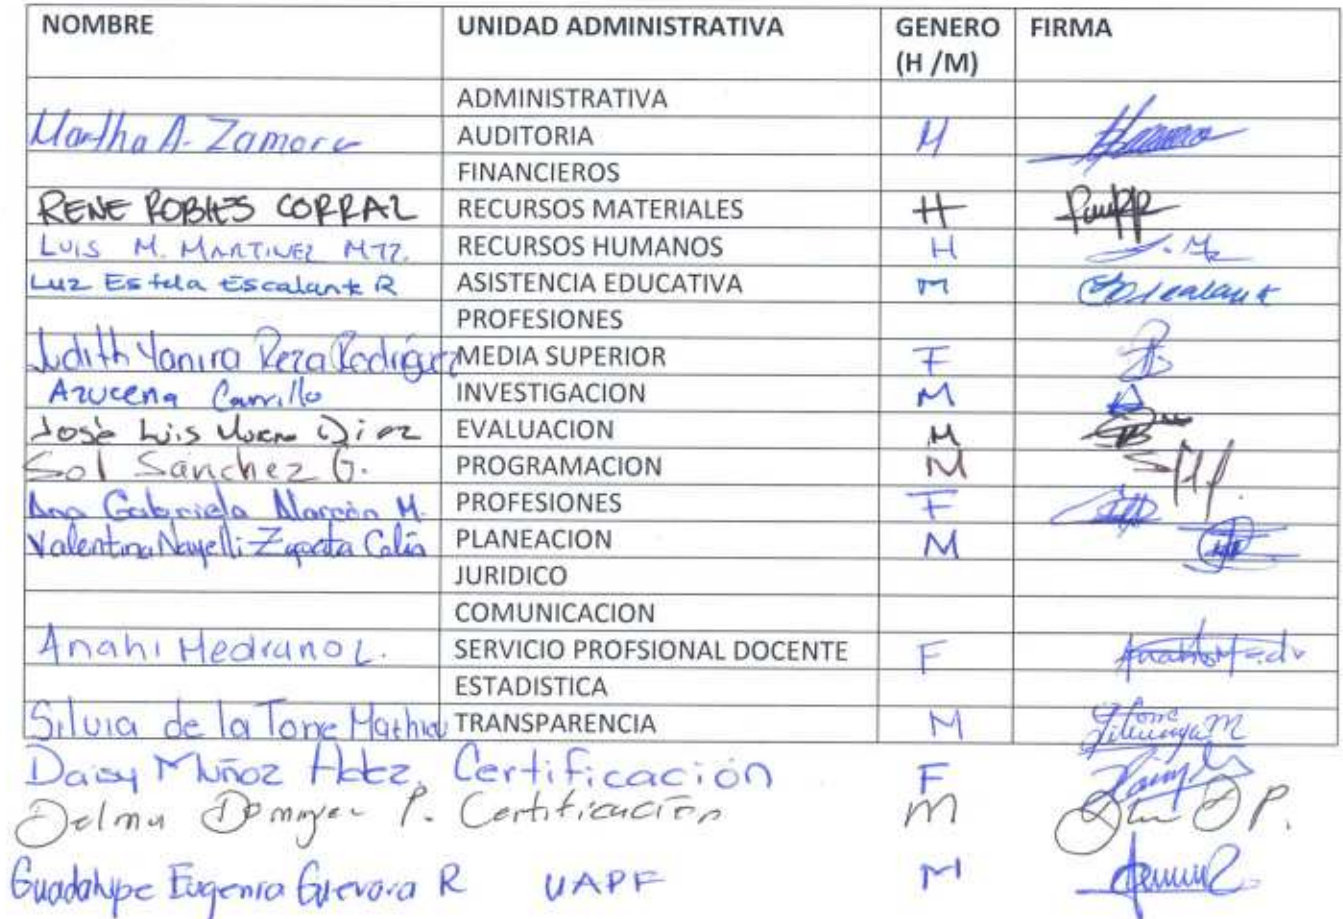 NOMBRE UNIDAD ADMINISTRATIVA GENERO (H /M) FIRMA
ADMINISTRATIVA
Martha A. Zamora AUDITORIA M
FINANCIEROS
RENE ROBLES CORRAL RECURSOS MATERIALES H
LUIS M. MARTINEZ MTZ. RECURSOS HUMANOS H
Luz Estela Escalante R ASISTENCIA EDUCATIVA M Escalante
PROFESIONES
Judith Yanira Reza Rodríguez MEDIA SUPERIOR F
Azucena Carrillo INVESTIGACION M
José Luis Diaz EVALUACION M
Sol Sánchez G. PROGRAMACION M
Ana Gabriela Alarcón M. PROFESIONES F
Valentina Nayelli Zapata Celia PLANEACION M
JURIDICO
COMUNICACION
Anahi Medrano L. SERVICIO PROFSIONAL DOCENTE F
ESTADISTICA
Silvia de la Torre Mathieu TRANSPARENCIA M
Daisy Muñoz Hdez. Certificación F
Delma P. Certificación M
Guadalupe Eugenia Guevara R UAPF M